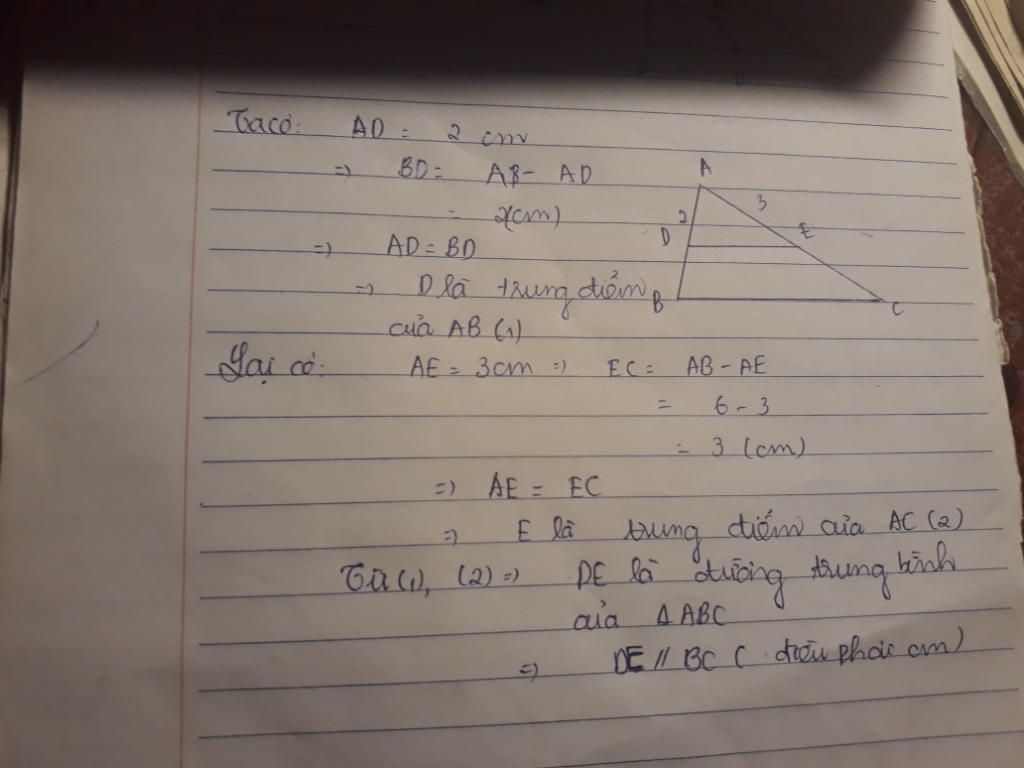 Ta có: AD = 2 cm
=> BD = AB - AD
= 2(cm)
=> AD = BD
=> D là trung điểm
của AB (1)
A
3
2
D
E
B
C
Lại có: AE = 3cm => EC = AB - AE
= 6 - 3
= 3 (cm)
=> AE = EC
=> E là trung điểm của AC (2)
Từ (1), (2) => DE là đường trung bình
của Δ ABC
=> DE // BC ( điều phải cm)